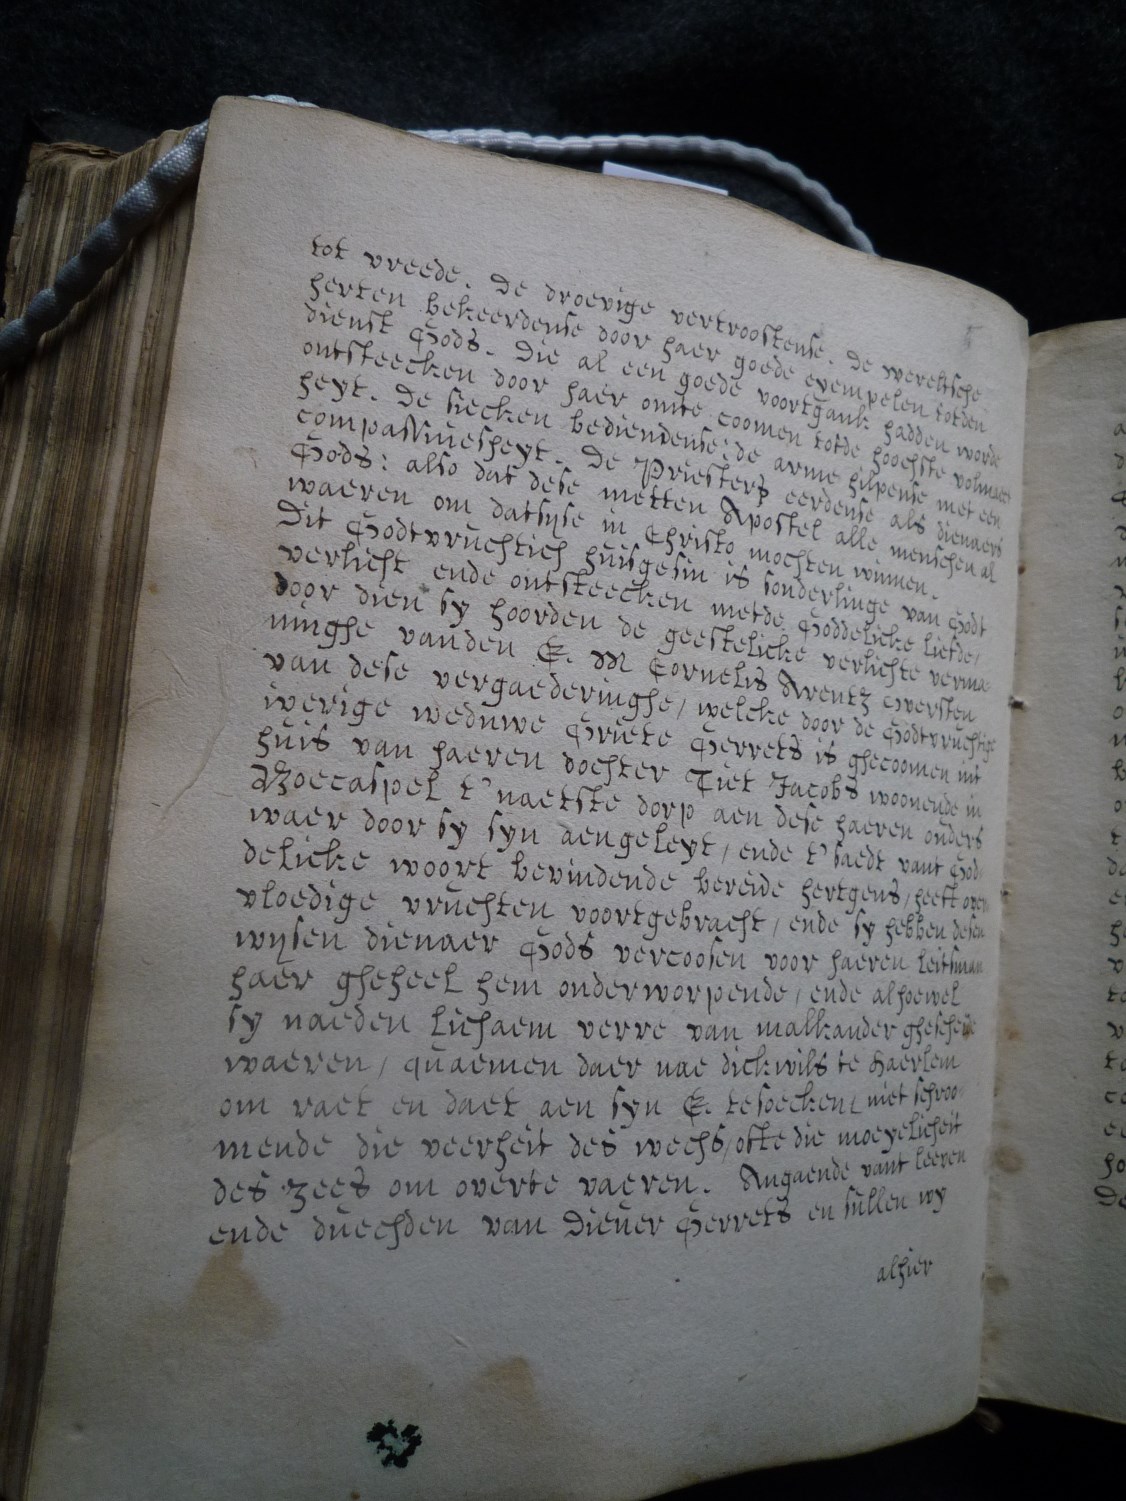 tot vreede. De droevige vertroostense. De wereltsche
herten bekeerdense door haer goede exempelen totden
dienst Gods. Die al een goede voortgank hadden worde
ontsteecken door haer omte coomen totde hoochste volmaect
heyt. De siecken bediendense: de arme hilpense met een
compassiuesheyt. De Priesters eerdense als dienaers
Gods: also dat dese metten Apostel alle menschen al
waeren om datsyse in Christo mochten winnen.
Dit Godtvruchtich huisgesin is sonderlinge van Godt
verlicht ende ontsteecken metde Goddelicke liefde,
door dien sy hoorden de geestelicke verlichte verma
ninghe vanden E. M Cornelis Arentz oversten
van dese vergaederinghe, welcke door de Godtvruchtige
iverige weduwe Griete Gerrets is ghecoomen int
huis van haeren dochter Tiet Jacobs woonende in
Woecaspel t'naetste dorp aen dese haeren ouders
waer door sy syn aengeleyt, ende t'saedt vant God
delicke woort bevindende bereide hertgens, heeft over
vloedige vruchten voortgebracht, ende sy hebben desen
wijsen dienaer Gods vercoosen voor haeren leitsman
haer gheheel hem onderworpende, ende alhoewel
sy naeden lichaem verre van malkander ghescheide
waeren, quaemen daer nae dickwils te Haerlem
om raet en daet aen syn E. tesoecken, niet schroo
mende die veerheit des wechs, ofte die moeyelicheit
des zees om overte vaeren. Angaende vant leeven
ende duechden van Diever Gerrets en sullen wy
alhier